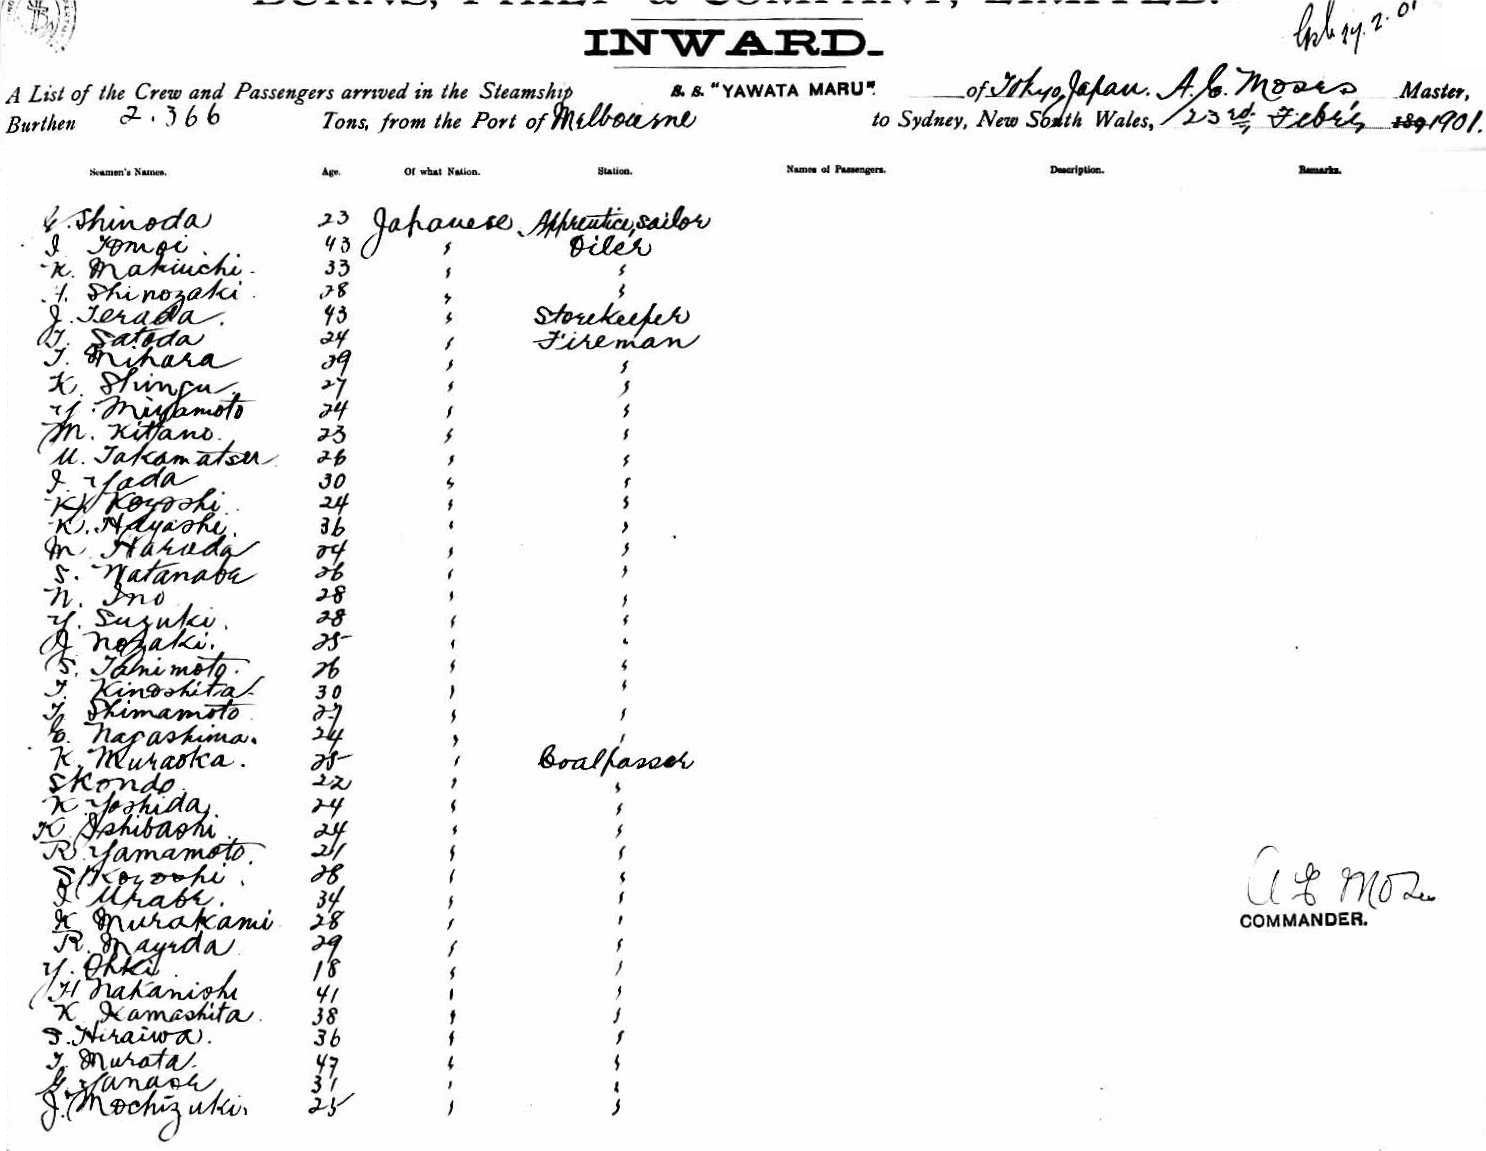 BURNS, PHILP & COMPANY, LIMITED.
INWARD.
A List of the Crew and Passengers arrived in the Steamship S. S. "YAWATA MARU". of Tokyo, Japan. A. E. Moses, Master,
Burthen 2.366 Tons, from the Port of Melbourne to Sydney, New South Wales, 23rd. Feby 189 1901.
Seamen's Names. Age. Of what Nation. Station. Names of Passengers. Description. Remarks.
Shinoda 23 Japanese Apprentice, sailor
I. Tomoi 43 " Oiler
K. Makiuchi. 33 " "
Shinozaki 28 " "
J. Terada. 43 " Storekeeper
T. Satoda 24 " Fireman
T. Mihara 29 " "
K. Shingu 27 " "
Y. Miyamoto 24 " "
M. Kitano. 23 " "
U. Takamatsu 26 " "
I. Yada 30 " "
K. Koyoshi 24 " "
K. Hayashi. 36 " "
M. Harada 24 " "
S. Watanabe 26 " "
N. Ino 28 " "
Y. Suzuki. 28 " "
Nozaki. 25 " "
S. Tanimoto. 26 " "
T. Kinoshita 30 " "
T. Shimamoto 27 " "
Nagashima. 24 " "
K. Muraoka. 25 " Coalpasser
S Kondo 22 " "
K. Yoshida 24 " "
K Ishibashi 24 " "
R Yamamoto. 21 " "
S. Koyoshi. 28 " "
I Urabe. 34 " "
K Murakami 28 " "
R. Mayeda 29 " "
Y. Ohki 18 " "
H Nakanishi 41 " "
K Kamashita. 38 " "
S. Hiraiwa. 36 " "
T. Murata. 47 " "
Yanase 31 " "
J. Mochizuki. 25 " "
A E Moses
COMMANDER.